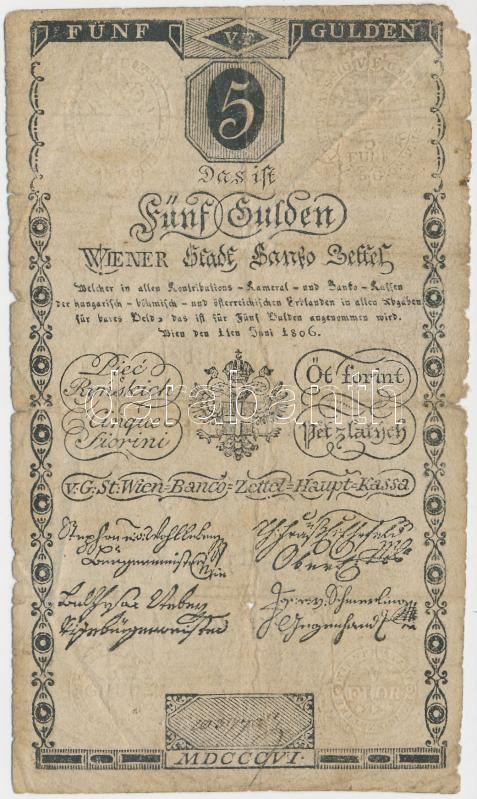 FÜNF V.F. GULDEN
5
Das ist
Fünf Gulden
WIENER Stadt Banko Zettel
Welcher in allen Kontributions-Kameral-und Banko-Kassen
der hungarisch-böhmisch-und österreichischen Erblanden in allen Abgaben
für bares Geld, das ist für Fünf Gulden angenommen wird.
Wien den 1ten Juni 1806.
Pięć
Ryńskich
Cinque
Fiorini
Öt forint
Pět zlatých
darabanth
v:G:St:Wien=Banco=Zettel=Haupt=Kassa
Stephan
Bürgermeister
Ober
Vizebürgermeister
v. Schmerling
Gegenhand
FLOR
MDCCCVI